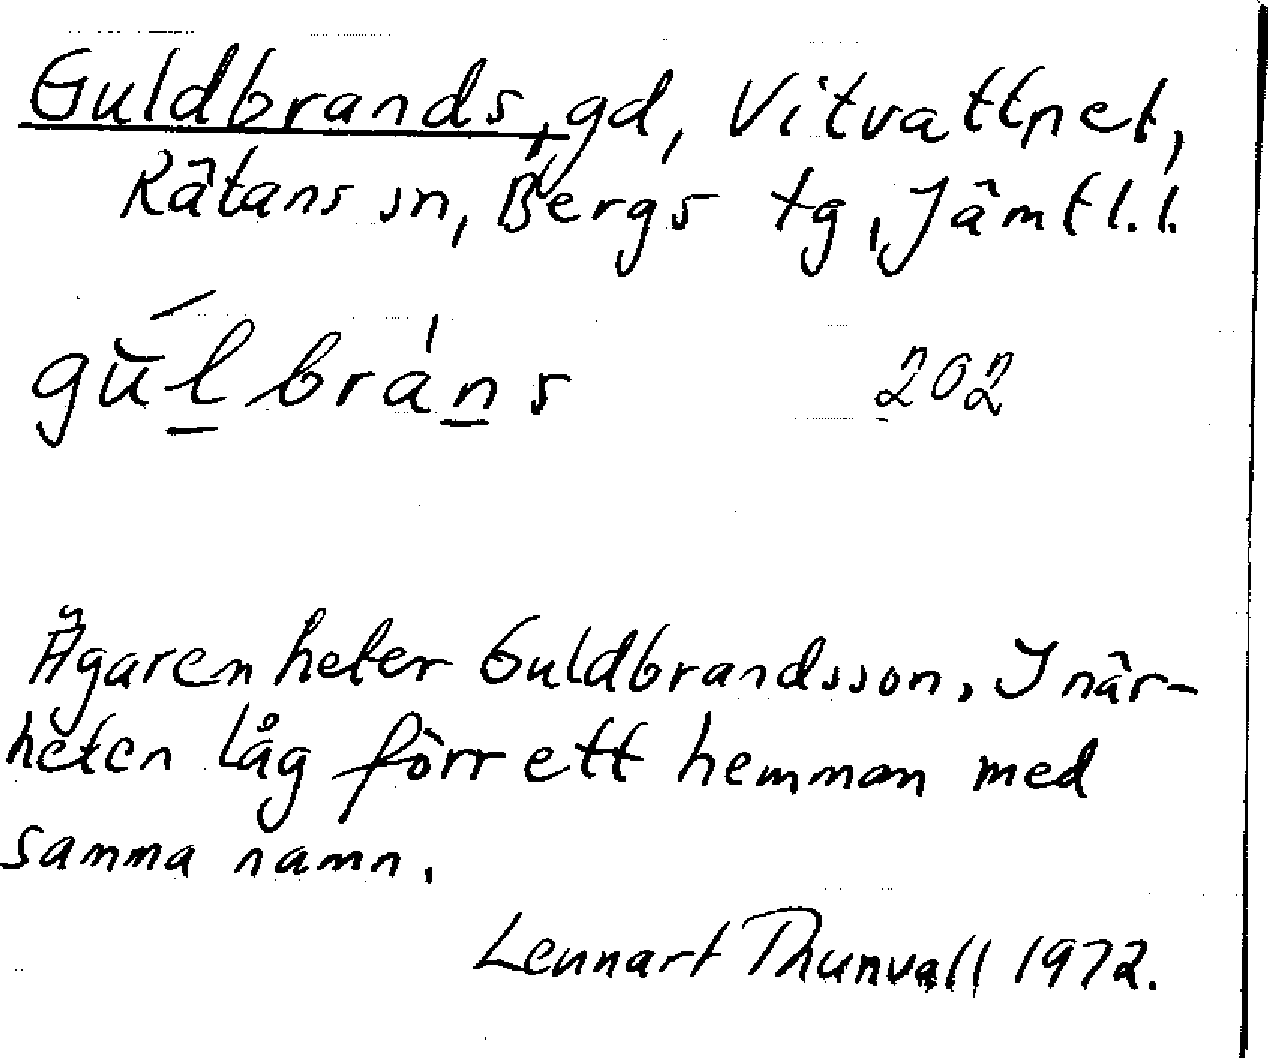 Guldbrands, gd, Vitvattnet,
Rätans sn, Bergs tg, Jämtl.l.
gu̅́l̲brán̲s 202
Ägaren heter Guldbrandsson. I när-
heten låg förr ett hemman med
samma namn.
Lennart Thunvall 1972.